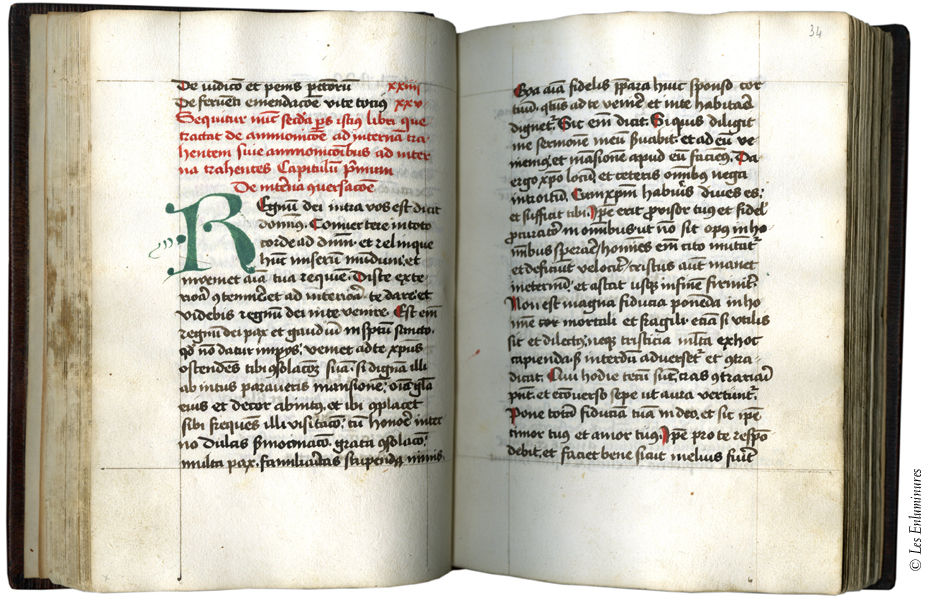 De iudicō et penis pctorū xxiiij
De feruēti emendacōe vite tocius xxv
Sequitur nūc secda ps istius libri que
tractat de ammonicōe ad internā tra-
hentem siue ammonicōibus ad inter
na trahentes Capitulū prīmum
De interna ꝯuersacōe
REgnū dei intra vos est dicit
dominus. Conuertere in toto
corde ad dnm et relinque
hūc miserū mundū et
inveniet aīa tua requiē. Disce exte-
riora ꝯtennere et ad interiora te dare et
videbis regnū dei in te venire. Est em̄
regnū dei pax et gaudiū in spū sancto
qd nō datur impijs. veniet ad te xpus
ostendēs tibi ꝯsolacōem suā. si dignā illi
ab intus paraueris mansionē. oīs glīa
eius et decor ab intus, et ibi ꝯplacet
sibi freques illi visitacō cū hoīe inter
no dulcis sermocinacō. grata ꝯsolacō.
multa pax, familiaritas stupenda nimis.
34
Eya aīa fidelis prepara huic sponso cor
tuū. qtinus ad te venire et in te habitare
dignet. Sic em̄ dicit. Si quis diligit
me sermonē meū seruabit. et ad eū ve
niemus et māsionē apud eū faciemus. Da
ergo xpo locū et ceteris omībus nega
introitū. Cum xpm habueris diues es
et sufficit tibi. Ipse erit prouisor tuus et fidelis
procurator in omībus ut nō sit opus in ho
minibus sperare / homīes em̄ cito mutātur
et deficiūt velociter / cristus aūt manet
in eternū, et astat usque in finē firmiter
Non est magna fiducia ponēda in ho
mīe mortali et fragili etiā si utilis
sit et dilectus, neque tristicia multa ex hoc
capienda si interdū aduersetur et ꝯtra-
dicat. Qui hodie tecū sūt, cras ꝯtrariari
pnt. et ecōuerso sepe ut aura vertuntur.
Pone totā fiduciā tuā in deo, et sit ipse
timor tuus et amor tuus. Ipse pro te respō
debit, et faciet bene sicut melius fuerit
© Les Enluminures